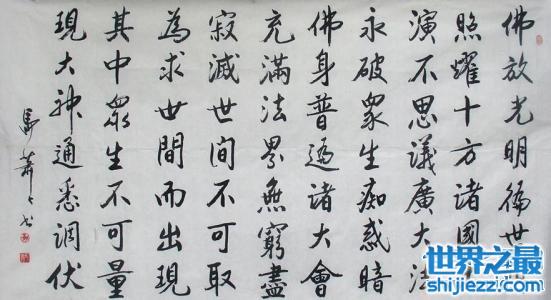 佛放光明徧世
照耀十方諸國
演不思議廣大法
永破眾生痴惑暗
佛身普遍諸大會
充滿法界無窮盡
寂滅世間不可取
為求世間而出現
其中眾生不可量
現大神通悉調伏
馬蕭々书
世界之最
shijiezzi.com